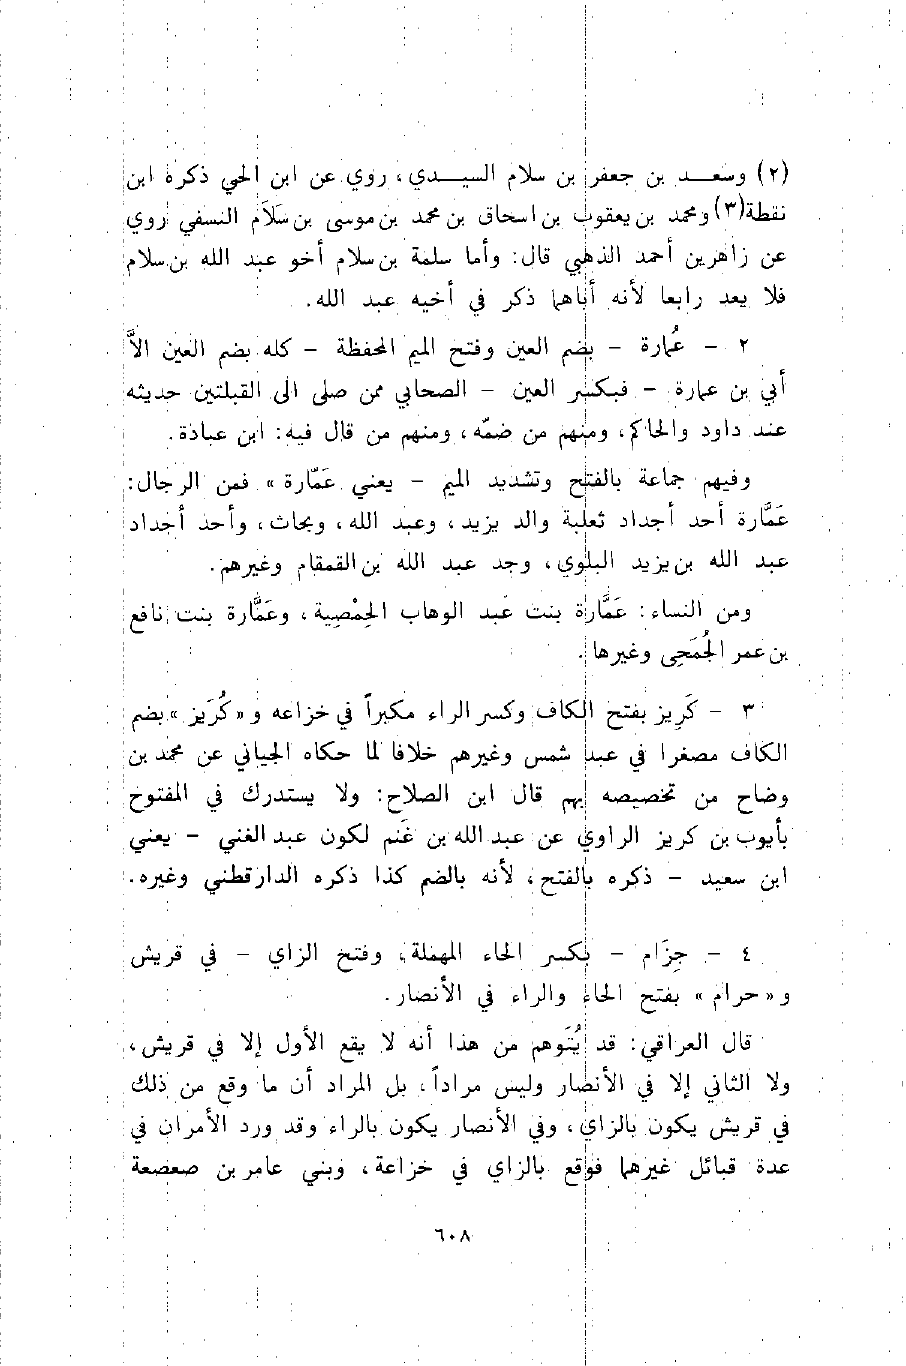 (٢) وسعد بن جعفر بن سلام السيدي، روي عن ابن الحي ذكره ابن
نقطة(٣) ومحمد بن يعقوب بن اسحاق بن محمد بن موسى بن سَلَام النسفي روي
عن زاهر بن أحمد الذهبي قال: وأما سلمة بن سلام أخو عبد الله بن سلام
فلا يعد رابعا لأنه أباهما ذكر في أخيه عبد الله.
٢ - عُمارة - بضم العين وفتح الميم المخففة - كله بضم العين الاَّ
أُبي بن عمارة - فبكسر العين - الصحابي ممن صلى الى القبلتين حديثه
عند داود والحاكم، ومنهم من ضمّه، ومنهم من قال فيه: ابن عبادة.
وفيهم جماعة بالفتح وتشديد الميم - يعني عَمّارة » فمن الرجال:
عَمَّارة أحد أجداد ثعلبة والد يزيد، وعبد الله، وبحاث، وأحد أجداد
عبد الله بن يزيد البلوي، وجد عبد الله بن القمقام وغيرهم.
ومن النساء: عَمَّارة بنت عبد الوهاب الحِمْصِية، وعَمَّارة بنت نافع
بن عمر الجُمَحِى وغيرها.
٣ - كَرِيز بفتح الكاف وكسر الراء مكبراً في خزاعه و «كُرَيز» بضم
الكاف مصغرا في عبد شمس وغيرهم خلافا لما حكاه الجياني عن محمد بن
وضاح من تخصيصه بهم قال ابن الصلاح: ولا يستدرك في المفتوح
بأيوب بن كريز الراوي عن عبد الله بن غَنم لكون عبد الغني - يعني
ابن سعيد - ذكره بالفتح، لأنه بالضم كذا ذكره الدارقطني وغيره.
٤ - حِزَام - بكسر الحاء المهملة، وفتح الزاي - في قريش
و «حرام» بفتح الحاء والراء في الأنصار.
قال العراقي: قد يُتَوهم من هذا أنه لا يقع الأول إلا في قريش،
ولا الثاني إلا في الأنصار وليس مراداً، بل المراد أن ما وقع من ذلك
في قريش يكون بالزاي، وفي الأنصار يكون بالراء وقد ورد الأمران في
عدة قبائل غيرهما فوقع بالزاي في خزاعة، وبني عامر بن صعصعة
٦٠٨